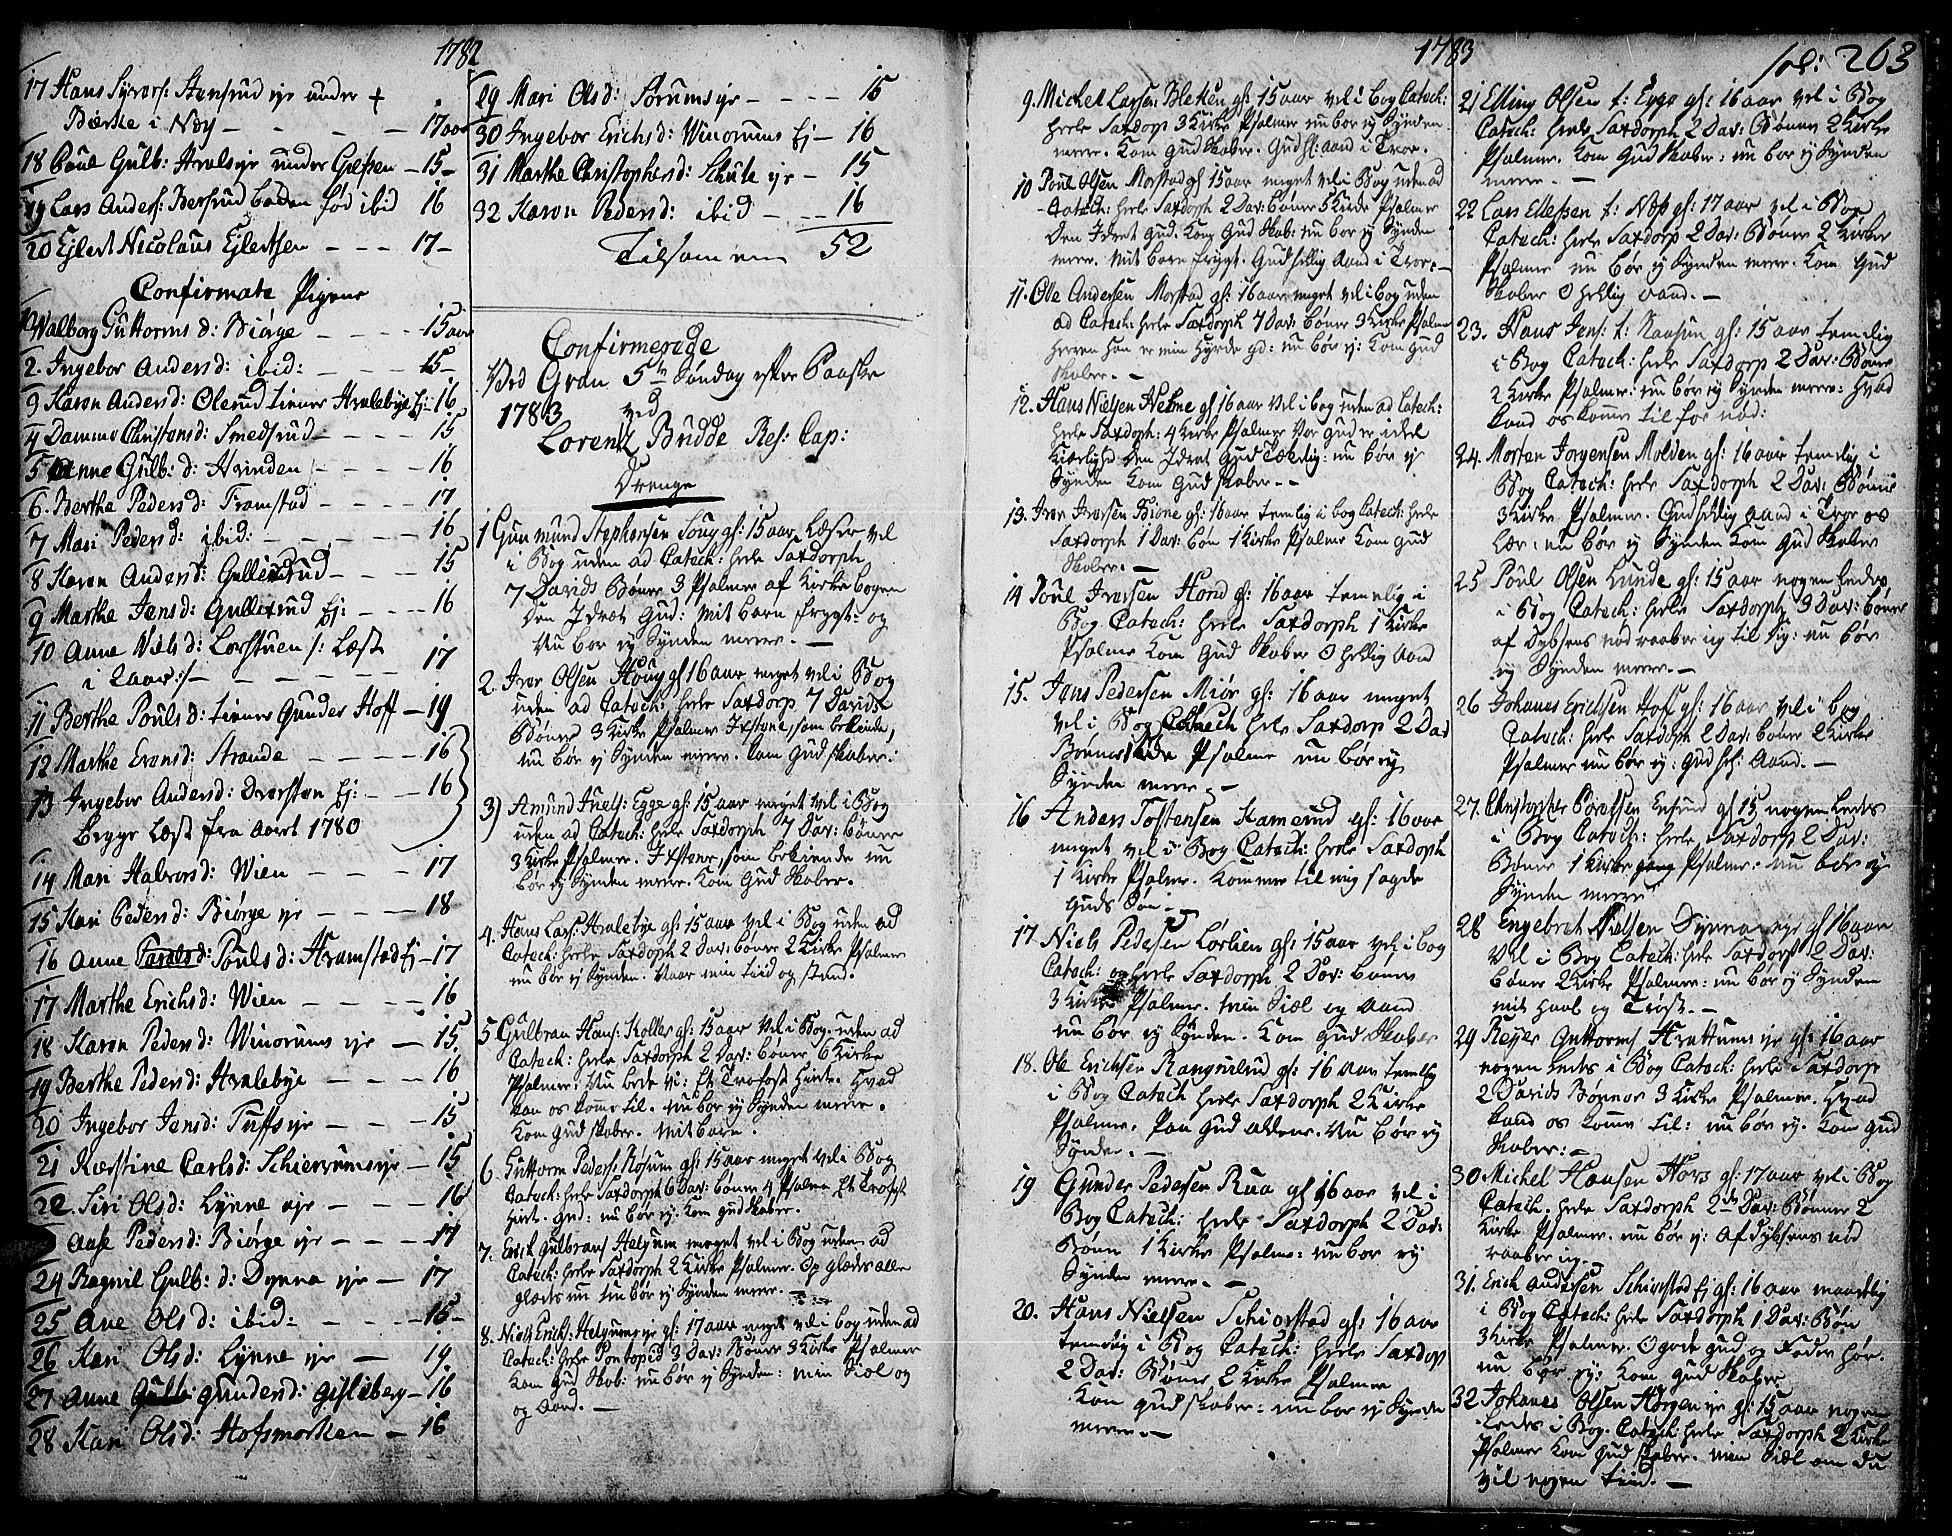 1782
17 Hans Syvers: Stensrud eje under +
Bierke i Næs - - - - 17 aar
18 Poul Gulb: Hvalseje under Gulsen - 15 -
19 Lars Anders: Bersrud baaen fød ibid 16
20 Eilert Nicolaus Eilertsen - - - 17 -
Confirmate Pigene
Walborg Guttorms d: Biörge - - - 15 aar
2. Ingebor Anders d: ibid: - - - 15 -
3 Karen Anders d: Olerud tiener Hvaleby Ej - 16
4 Damme Christens d: Smedsrud - - - 15
5 Anne Gulb: d: Hvinden - - - 16
6. Berthe Peders d: Framstad - - - 17
7 Mari Peders d: ibid: - - - 16
8 Karen Anders d: Gullerud - - - 15
9 Marthe Jens d: Gullerud Ej: - - - 16
10 Anne Niels d: Lorstuen /: Læst
i 2 aar :/ - - - 17
11 Berthe Pouls d: tiener Gunder Hoff - 19
12 Marthe Evens d: Strande - - - 16
13 Ingebor Anders d: Ej: - - 16
Begge Læst fra Aaret 1780
14 Mari Halvors d: Wien - - - 17
15 Kari Peders d: Biørge eje - - - 18
16 Anne Pouls d: Framstad Ej - 17
17 Marthe Erichs d: Wien - - - 16
18 Karen Peders d: Winorums eje - 15
19 Berthe Peders d: Hvalebye - - - 16
20 Ingebor Jens d: Tuffs eje - - - 15
21 Kierstine Carls d: Schierrums eje - 15
22. Siri Ols d: Lynne eje - - - 16
Aase Peders d: Biørge eje - - - 17
24 Ragnil Gulb: d: Dynna eje - 17
25 Ane Ols d: ibid: - - - 15 -
26 Kari Ols d: Lynne eje - 19
27 Anne Gunders d: Gisleberg - 16
28 Kari Ols d: Hofsmarken - 16
29 Mari Ols d: Sorums eje - - - - 15
30 Ingebor Erichs d: Winorums Ej - 16
31 Marthe Christophers d: Schute eje - 15
32 Karen Peders d: ibid - - - 16
Tilsammen 52
Confirmerede
Ved Gran 5te Søndag efter Paaske
1783 ved
Lorentz Budde Res: Cap:
Drenge
1 Gunmund Stephensen Soug gl: 15 aar Læser vel
i Bog uden ad Catech: hele Saxdorph
7 Davids Bønner 3 Psalmer af Kirke bogen
Den Idræt Gud: Mit barn frygt: og
Nu bør ej Synden mere. -
2. Iver Olsen Houg gl 16 aar meget vel i Bog
uden ad Catech: hele Saxdorp 7 Davids
Bønner 3 Kirke Psalmer som bekiende,
nu bør ej Synden mere. Kom Gud skaber.
3) Amund Egge gl: 15 aar meget vel i Bog
uden ad Catech: hele Saxdorph 7 Dav: bønner
3 Kirke Psalmer. som bekiende nu
bør ej Synden mere. Kom Gud Skaber.
4. Hans Lars: Hvalebye gl: 15 aar vel i Bog uden ad
Catech: hele Saxdorph 2 Dav: bønner 2 Kirke Psalmer
nu bør ej Synden. Naar min tiid og stund.
5 Gulbran Hans: Koller gl: 15 aar vel i Bog uden ad
Catech: hele Saxdorph 2 Dav: bønner 6 Kirke
Psalmer: Nu bede vi: Et Trofast Hierte. Hvad
kan os komme til. nu bør ej Synden mere.
Kom Gud skaber. Mit barn.
6 Guttorm Peders: Rosum gl: 15 aar meget vel i Bog
Catech: hele Saxdorph 6 Dav: bønner 4 Psalmer Et Trofast
Hierte. Gud: nu bør ej. Kom Gud skaber.
7. Erich Gulbrans: Helgum meget vel i Bog uden ad
Catech: hele Saxdorp 2 Kirke Psalmer. Op glæder alle
glæder nu bør ej Synden mere. -
8. Niels Erichs: Helgumseje gl: 17 aar meget vel i bog uden ad
Catech: hele Pontopid 3 Dav: Bønner 3 Kirke Psalmer
Kom Gud Skab: nu bør ej Synden: min Siel og
og Aand. -
1783
fol: 263
9. Michel Larsen Bleken gl: 15 aar vel i bog Catech:
hele Saxdorp 3 Kirke Psalmer nu bør ej Synden
mere. Kom Gud Skaber. Gud hl: aand i Troe.
10 Poul Olsen Morstad gl: 15 aar meget vel i Bog uden ad
Catech: hele Saxdorp 2 Dav: bønner 5 Kirke Psalmer
Den Idræt Gud. Kom Gud Skab: nu bør ej Synden
mere. Mit barn frygt. Gud hellig Aand i Troe: -
11. Ole Andersen Morstad gl: 16 aar meget vel i bog uden
ad Catech: hele Saxdorph 7 Dav: bønner 3 Kirke Psalmer
Herren han er min Hyrde gd: nu bør ej: Kom Gud
Skaber. -
12. Hans Nielsen Helme gl 16 aar vel i bog uden ad Catech:
hele Saxdorph: 4 Kirke Psalmer Vor Gud er idel
Kierlighed Den Idræt Gud Tækelig: nu bør ej
Synden Kom Gud Skaber. -
13. Iver Iversen Bione gl: 16 aar temelig i bog Catech: hele
Saxdorph 1 Dav: bøn 1 Kirke Psalme Kom Gud
Skaber. -
14 Poul Iversen Hond gl: 16 aar temelig i
Bog Catech: hele Saxdorph 1 Kirke
Psalme Kom Gud Skaber O hellig Aand
15. Jens Pedersen Miör gl: 16 aar meget
vel i Bog Catech hele Saxdorp 2 Dav
Bønner Psalme nu bør ej
Synden mere. -
16 Anders Tostensen Hamerud gl: 16 aar
meget vel i Bog Catech: hele Saxdorph
1 Kirke Psalme. Kommer til mig sagde
Guds Søn. -
17 Niels Pedersen Lørlien gl: 15 aar vel i bog
Catech: og hele Saxdorph 2 Dav: bønner
3 Kirke Psalmer. Min Siæl og Aand
nu bør ej Synden. Kom Gud Skaber
18. Ole Erichsen Rangnilrud gl: 16 aar temelig
i Bog Catech hele Saxdorph 2 Kirke
Psalmer. Paa Gud alene. Nu bør ej
Synden. -
19 Gunder Pedersen Rua gl 16 aar vel i
Bog Catech: hele Saxdorph 2 Dav:
Bønn 1 Kirke Psalme: nu bør ej
Synden mere. -
20. Hans Nielsen Schiorstad gl: 16 aar
temelig i Bog Catech: hele Saxdorp
2 Dav: Bønner 2 Kirke Psalmer
Kom Gud skaber: nu bør ej Synden
mere. -
21 Elling Olsen t: Egge gl: 16 aar vel i Bog
Catech: hele Saxdorph 2 Dav: Bønner 2 Kirke
Psalmer. Kom Gud Skaber: nu bør ej Synden
mere. -
22 Lars Ellefsen t: Næs gl: 17 aar vel i Bog
Catech: hele Saxdorp 2 Dav: Bønner 2 Kirke
Psalmer nu bør ej Synden mere. Kom Gud
Skaber O hellig Aand. -
23. Hans Jens: t: Raasum gl: 15 aar temelig
i Bog Catech: hele Saxdorp 2 Dav: Bønner
2 Kirke Psalmer: nu bør ej Synden mere: Hvad
kand os komme til for nød:
24. Morten Jorgensen Molden gl: 16 aar temelig i
Bog Catech: hele Saxdorph 2 Dav: Bønner
3 Kirke Psalmer. Gud hellig Aand i Troe os
lær: nu bør ej Synden Kom Gud Skaber
25 Poul Olsen Lunde gl: 15 aar nogen ledes
i Bog Catech: hele Saxdorph 3 Dav: bønner
af Dybsens nød raaber ieg til dig: nu bør
ej Synden mere. -
26 Johanes Erichsen Hof gl: 16 aar vel i bog
Catech: hele Saxdorph 2 Dav: bønner 2 Kirke
Psalmer nu bør ej: Gud hl: Aand. -
27. Christopher Ensrud gl 15 nogen ledes
i Bog Catech: hele Saxdorp 2 Dav:
Bønner 1 Kirke Psalmer: nu bør ej
Synden mere
28 Engebret Nielsen Dynna eje gl 16 aar
vel i Bog Catech: hele Saxdorp 2
bønner 2 Kirke Psalmer: nu bør ej Synden
mit Haab og Trøst. -
29 Reyer Guttorms: Hvattums eje gl: 16 aar
nogen ledes i Bog Catech: hele Saxdorp
2 Davids Bønner 3 Kirke Psalmer. Hvad
kand os komme til: nu bør ej. Kom Gud
Skaber: -
30 Michel Hansen Hors gl: 17 aar vel i Bog
Catech. hele Saxdorph 2de Dav: Bønner 2
Kirke Psalmer. nu bør ej: Af Dybsens nød
raaber ieg. -
31. Erich Andersen Schiorstad Ej gl: 16 aar maadelig
i Bog Catech: hele Saxdorph 1 Dav: Bøn
3 Kirke Psalmer. O gode Gud og Fader hør.
nu bør ej: Kom Gud Skaber
32 Johanes Olsen Horgen eje gl: 15 aar nogen
ledes i Bog. Catech: hele Saxdorph 2 Kirke
Psalmer Kom Gud skaber. Min Siæl om du
vil nogen tiid. -